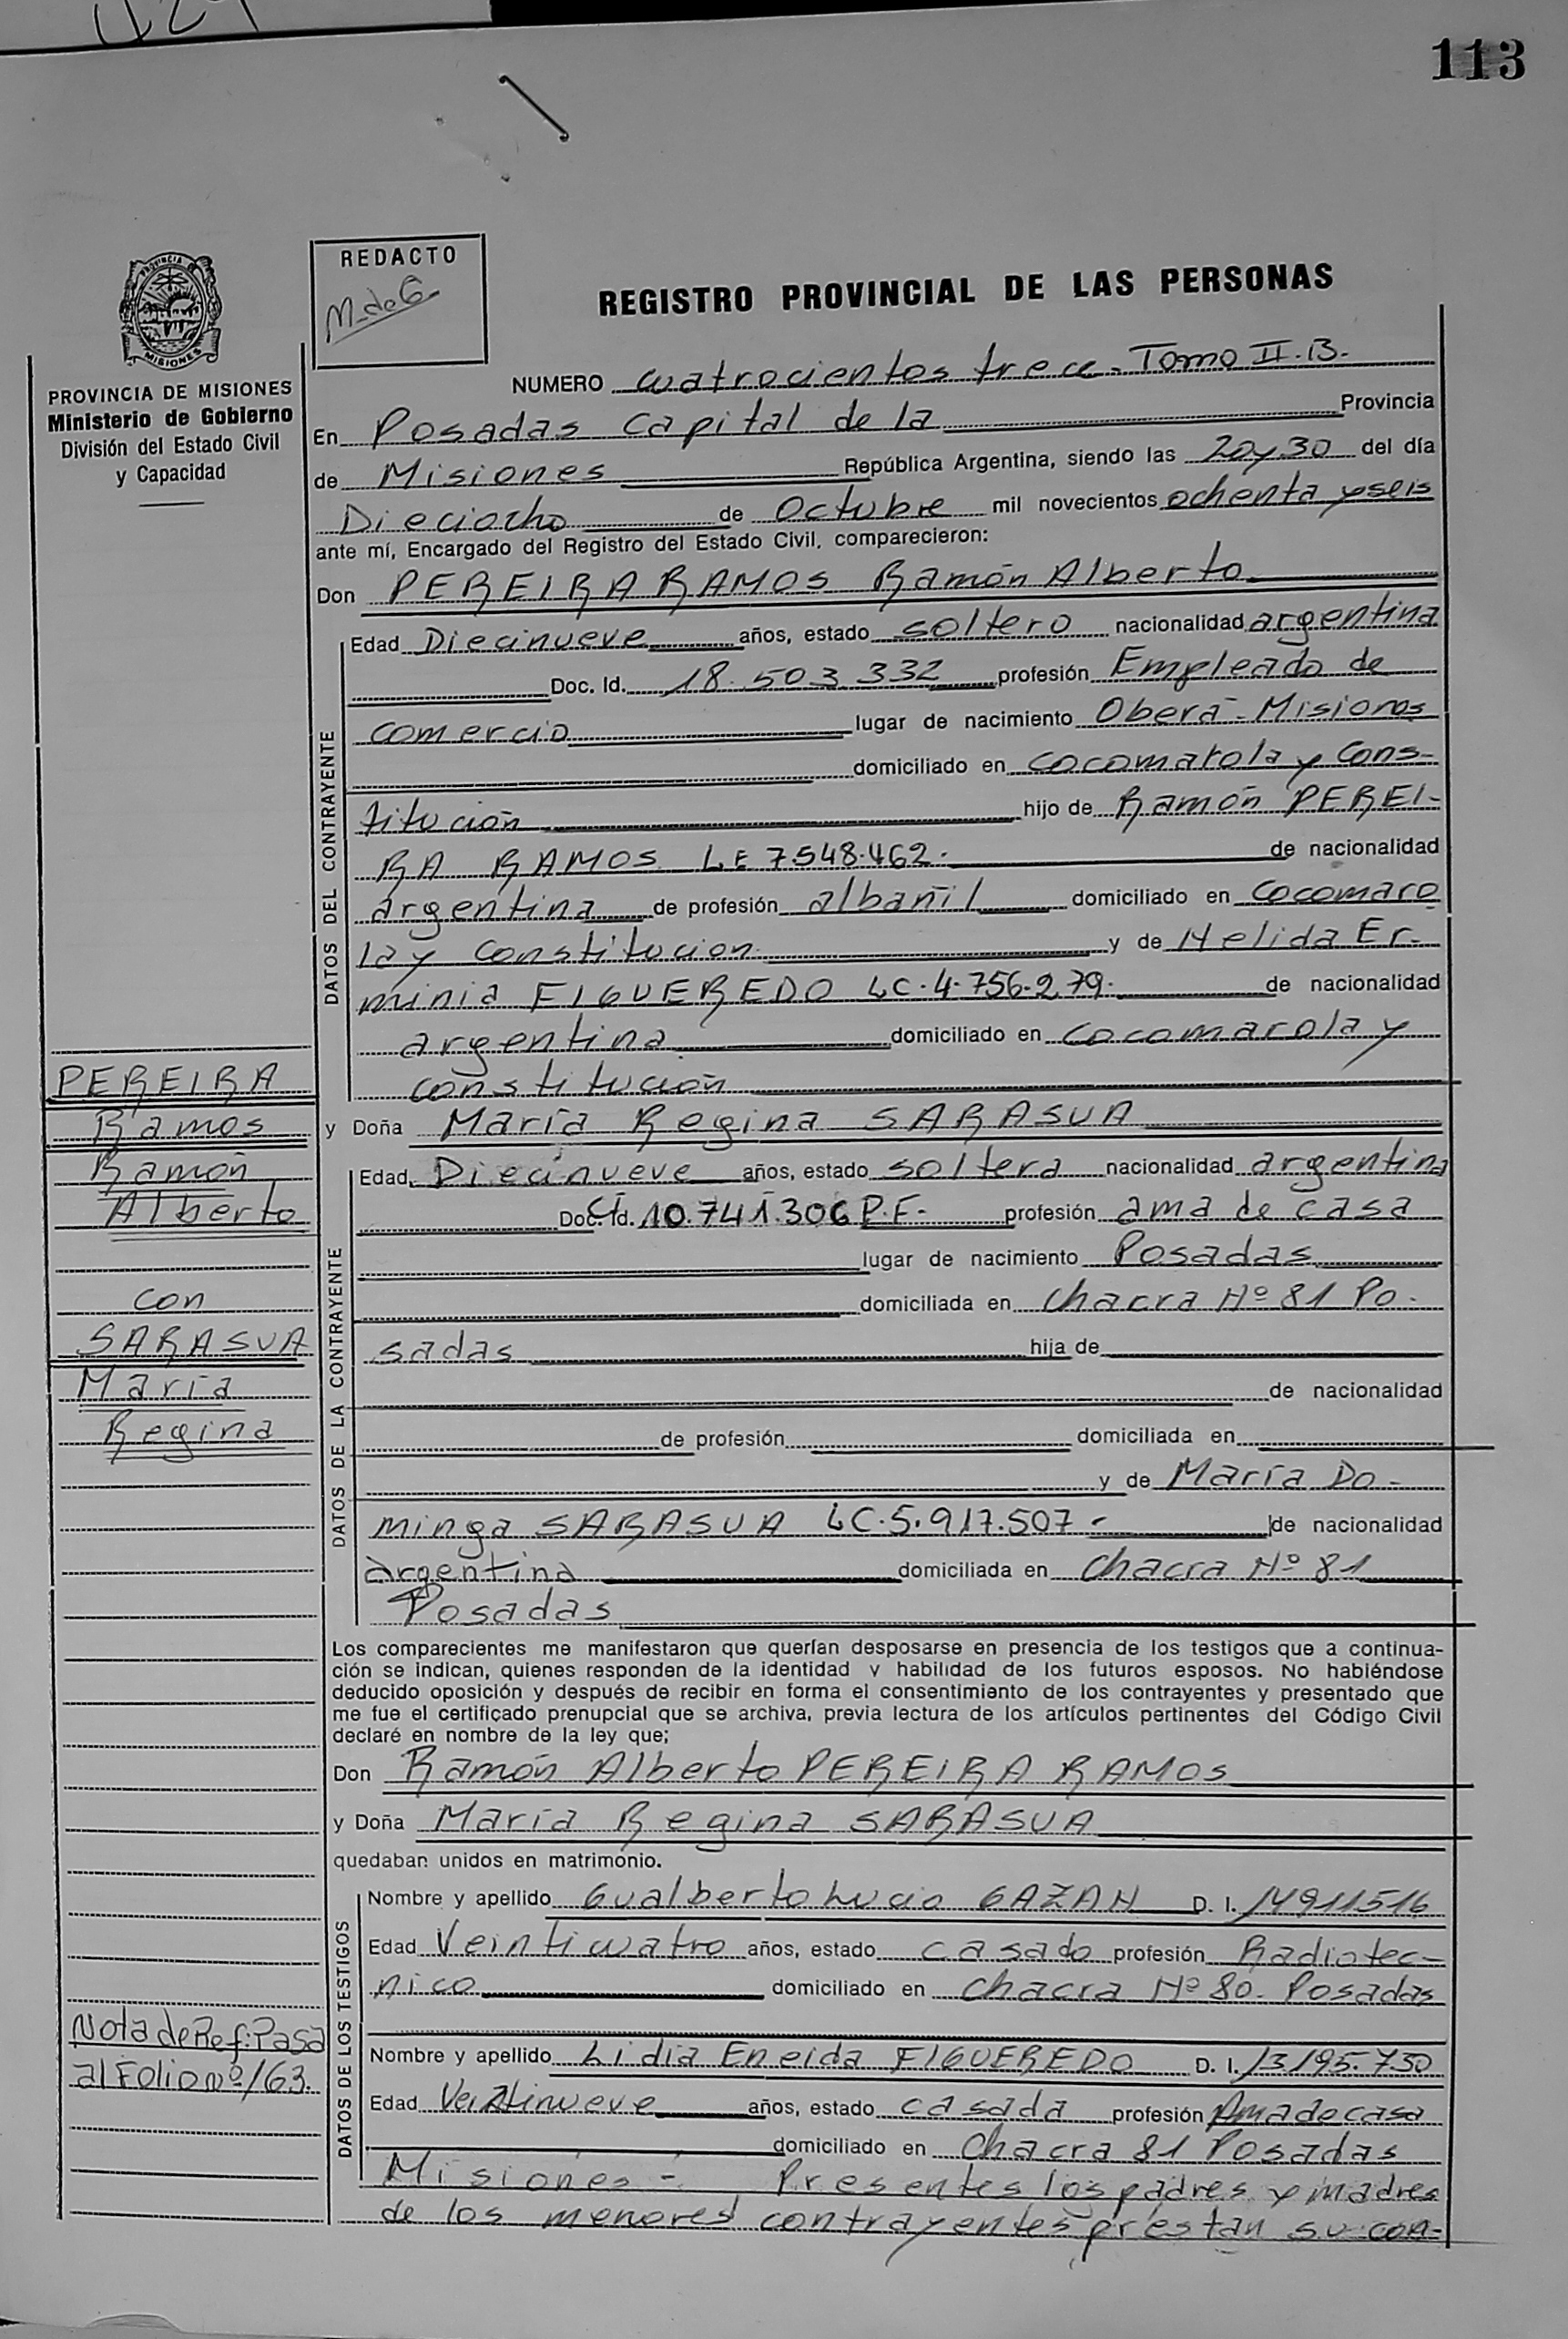 113
REDACTO
M. de G.
REGISTRO PROVINCIAL DE LAS PERSONAS
PROVINCIA DE MISIONES
Ministerio de Gobierno
División del Estado Civil
y Capacidad
NUMERO cuatrocientos trece. Tomo II. B.
En Posadas Capital de la Provincia
de Misiones República Argentina, siendo las 20 y 30 del día
Dieciocho de Octubre mil novecientos ochenta y seis
ante mí, Encargado del Registro del Estado Civil, comparecieron:
Don PEREIRA RAMOS Ramón Alberto
DATOS DEL CONTRAYENTE
Edad Diecinueve años, estado soltero nacionalidad argentina
Doc. Id. 18.503.332 profesión Empleado de
comercio lugar de nacimiento Oberá - Misiones
domiciliado en Cocomarola y Cons-
titución hijo de Ramón PEREI-
RA RAMOS LE 7.548.462. de nacionalidad
argentina de profesión albañil domiciliado en Cocomaro
la y Constitucion y de Nelida Er-
minia FIGUEREDO LC. 4.756.279. de nacionalidad
argentina domiciliado en Cocomarola y
constitución
y Doña María Regina SARASUA
DATOS DE LA CONTRAYENTE
Edad Diecinueve años, estado soltera nacionalidad argentina
Doc. Id. 10.741.306 P.F. profesión ama de casa
lugar de nacimiento Posadas
domiciliada en Chacra Nº 81 Po-
sadas hija de
de nacionalidad
de profesión domiciliada en
y de María Do-
minga SARASUA LC. 5.917.507 - de nacionalidad
argentina domiciliada en Chacra Nº 81
Posadas
PEREIRA
Ramos
Ramón
Alberto
con
SARASUA
María
Regina
Los comparecientes me manifestaron que querían desposarse en presencia de los testigos que a continua-
ción se indican, quienes responden de la identidad y habilidad de los futuros esposos. No habiéndose
deducido oposición y después de recibir en forma el consentimiento de los contrayentes y presentado que
me fue el certificado prenupcial que se archiva, previa lectura de los artículos pertinentes del Código Civil
declaré en nombre de la ley que;
Don Ramón Alberto PEREIRA RAMOS
y Doña María Regina SARASUA
quedaban unidos en matrimonio.
DATOS DE LOS TESTIGOS
Nombre y apellido Gualberto Lucio GAZAN D. I. 14911516
Edad Veinticuatro años, estado casado profesión Radiotec-
nico domiciliado en Chacra Nº 80. Posadas
Nombre y apellido Lidia Eneida FIGUEREDO D. I. 13195.730
Edad Veintinueve años, estado casada profesión Ama de casa
domiciliado en Chacra 81 Posadas
Misiones - Presentes los padres y madres
de los menores contrayentes prestan su con-
Nota de Ref: Pasa
al Folio nº 163.